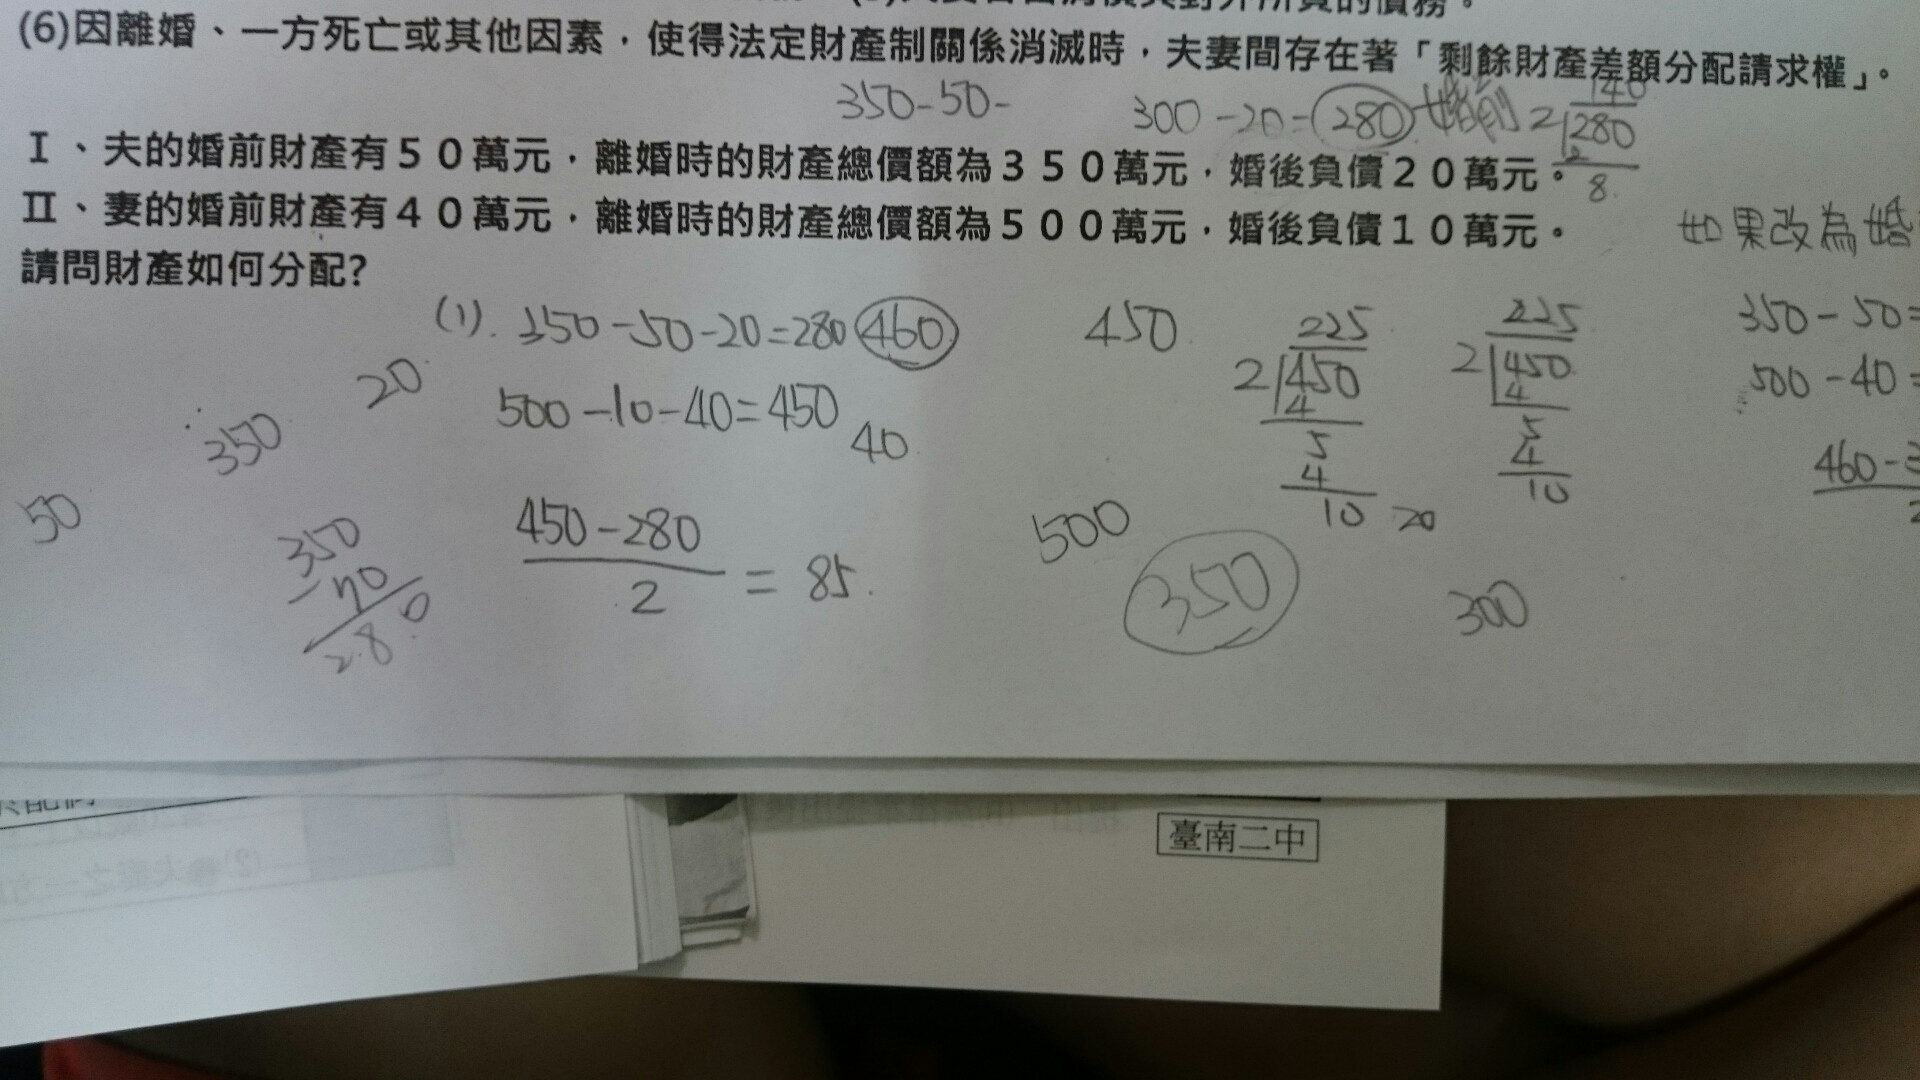 (6)因離婚、一方死亡或其他因素，使得法定財產制關係消滅時，夫妻間存在著「剩餘財產差額分配請求權」。
350-50-
300-20=280 婚前
140
2 280
2
8.
I、夫的婚前財產有50萬元，離婚時的財產總價額為350萬元，婚後負債20萬元。
II、妻的婚前財產有40萬元，離婚時的財產總價額為500萬元，婚後負債10萬元。
如果改為婚
請問財產如何分配?
(1). 350-50-20=280 460
500-10-40=450
40
450-280
2
= 85.
20
350
50
350
-70
280
450
225
2 450
4
5
4
10
20
225
2 450
4
5
4
10
500
350
300
350-50=
500-40=
460-3
2
臺南二中